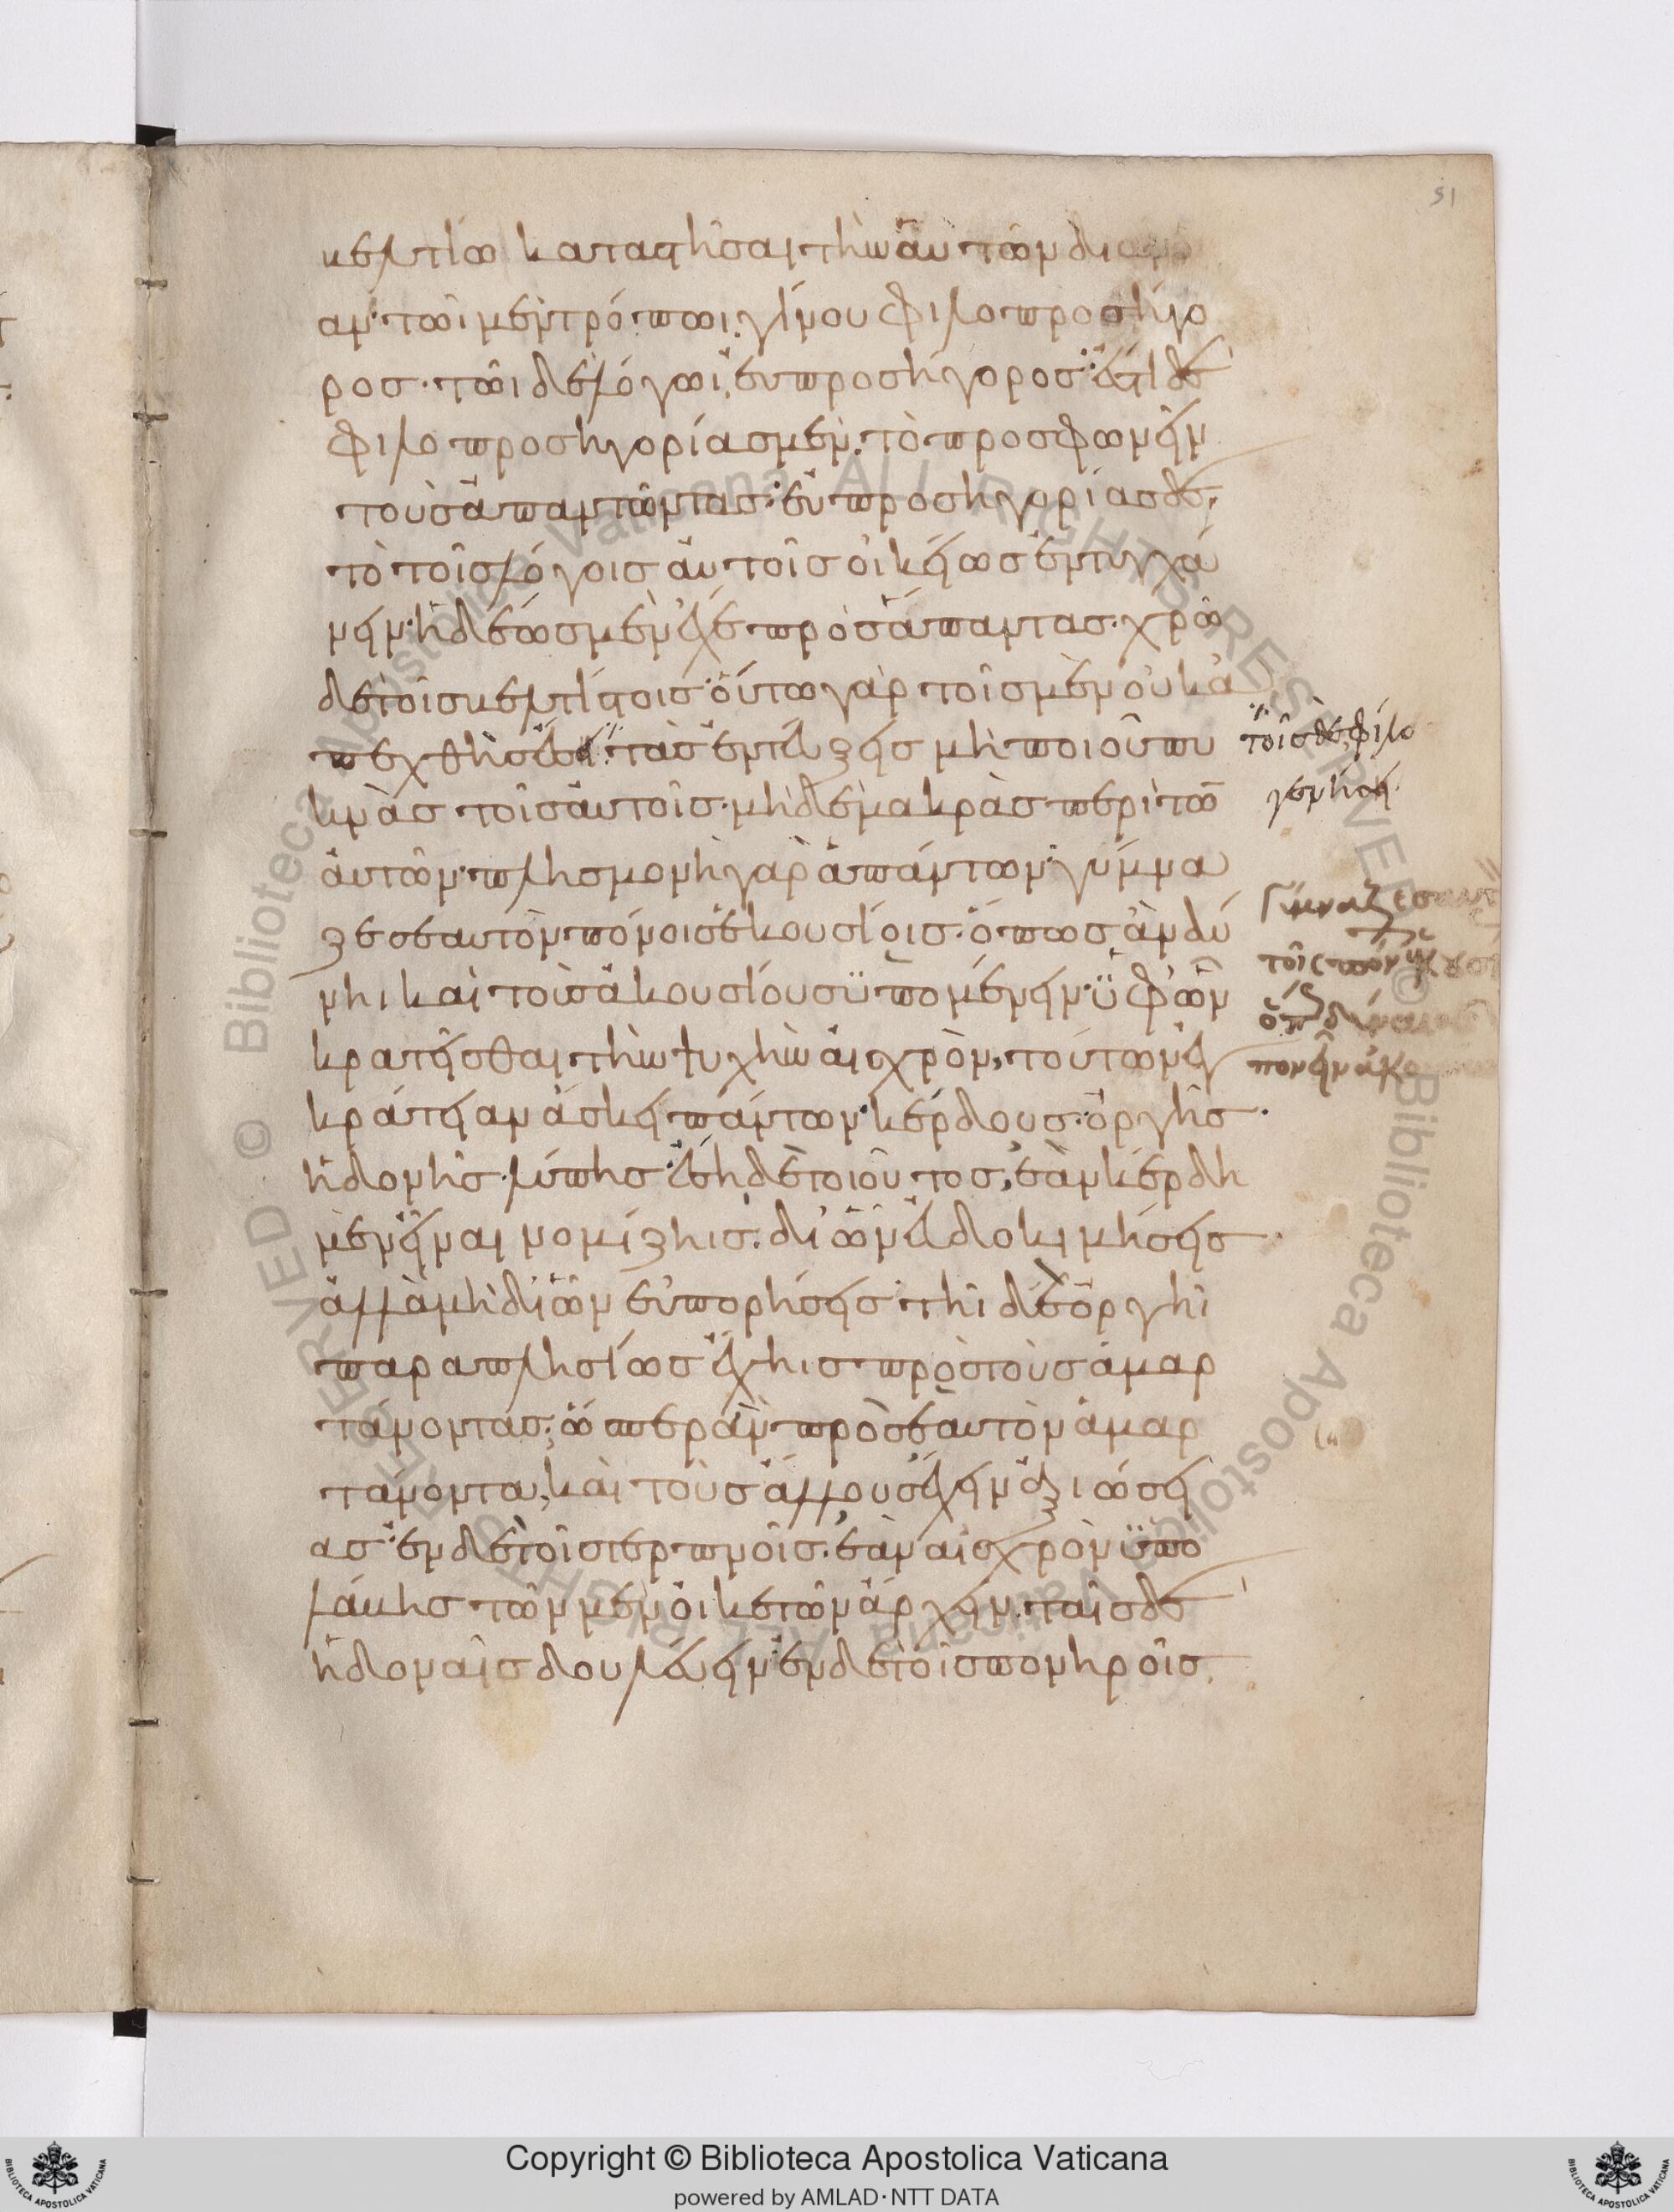 51
βελτίω καταστῆσαι τὴν αὐτῶν διάνοι
αν· τῶι μὲν τρόπωι, γίνου φιλοπροσήγο
ρος· τῶι δὲ λόγωι, εὐπροσήγορος· ἔστι δὲ
φιλοπροσηγορίας μὲν, τὸ προσφωνεῖν
τοὺς ἀπαντῶντας· εὐπροσηγορίας δὲ,
τὸ τοῖς λόγοις αὐτοῖς οἰκείως ἐντυγχά
νειν· ἡδέως μὲν ἔχε πρὸς ἅπαντας· χρῶ
δὲ τοῖς βελτίστοις· οὕτω γὰρ τοῖς μὲν οὐκ ἀ
πεχθὴς ἔσει· τὰς ἐντεύξεις μὴ ποιοῦ πυ
κνὰς τοῖς αὐτοῖς· μὴ δὲ μακρὰς περὶ τῶν
αὐτῶν· πλησμονὴ γὰρ ἁπάντων· γύμνα
ζε σεαυτὸν πόνοις ἑκουσίοις· ὅπως ἂν δύ
νηι καὶ τοὺς ἀκουσίους ὑπομένειν· ὑφ' ὧν
κρατεῖσθαι τὴν ψυχὴν αἰσχρὸν, τούτων ἐγ
κράτειαν ἄσκει πάντων· κέρδους· ὀργῆς·
ἡδονῆς· λύπης· ἔσῃ δὲ τοιοῦτος, ἐὰν κέρδη
μὲν εἶναι νομίζηις· δι' ὧν εὐδοκιμήσεις·
ἀλλὰ μὴ δι' ὧν εὐπορήσεις· τῆι δὲ ὀργῆι
παραπλησίως ἔχηις πρὸς τοὺς ἁμαρ
τάνοντας· ὥσπερ ἂν πρὸς σεαυτὸν ἁμαρ
τάνοντα, καὶ τοὺς ἄλλους ἔχειν ἀξιώσει
ας· ἐν δὲ τοῖς τερπνοῖς· ἐὰν αἰσχρὸν ὑπο
λάβης τῶν μὲν οἰκετῶν ἄρχειν· ταῖς δὲ
ἡδοναῖς δουλεύειν· ἐν δὲ τοῖς πονηροῖς
τοῖς δὲ φίλο
γενήσει
Γύμναζε σεαυτ
τοῖς πόνοις
Copyright © Biblioteca Apostolica Vaticana
powered by AMLAD·NTT DATA